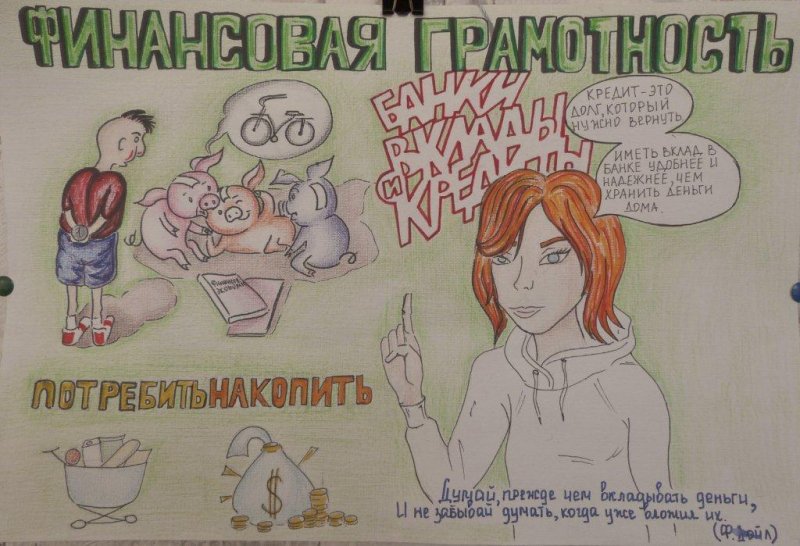 ФИНАНСОВАЯ ГРАМОТНОСТЬ
БАНКИ
ВКЛАДЫ
И КРЕДИТЫ
КРЕДИТ-ЭТО
ДОЛГ, КОТОРЫЙ
НУЖНО ВЕРНУТЬ
ИМЕТЬ ВКЛАД В
БАНКЕ УДОБНЕЕ И
НАДЕЖНЕЕ, ЧЕМ
ХРАНИТЬ ДЕНЬГИ
ДОМА.
ПОТРЕБИТЬ НАКОПИТЬ
$
Думай, прежде чем вкладывать деньги,
И не забывай думать, когда уже вложил их.
(Ф. Дойл)